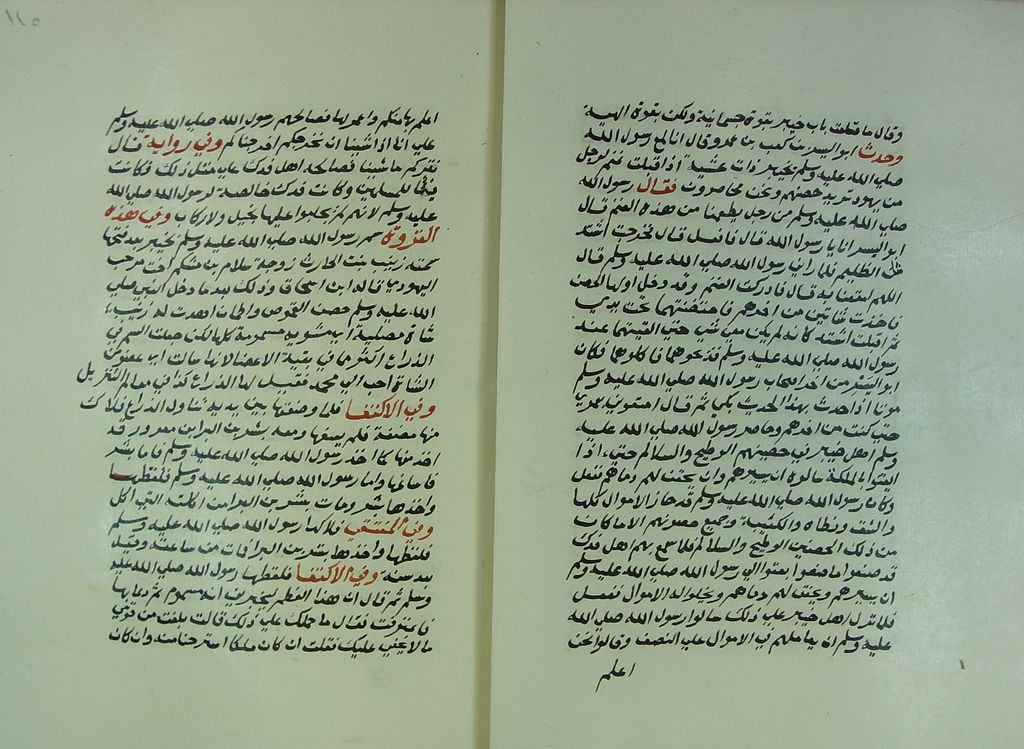 وقال ما قلعت باب خيبر بقوة جسمانية ولكن بقوة الهية
وحدث ابو اليسر بن كعب بن عمرو قال انا لمع رسول الله
صلي الله عليه وسلم بخيبر ذات عشية اذ اقبلت غنم لرجل
من يهود تريد حصنهم ونحن محاصرون فقال رسول الله
صلي الله عليه وسلم من رجل يطعمنا من هذه الغنم قال
ابو اليسر انا يا رسول الله قال فافعل قال فخرجت اشتد
مثل الظليم فلما راني رسول الله صلي الله عليه وسلم قال
اللهم امتعنا به قال فادركت الغنم وقد دخل اولها الحصن
فاخذت شاتين من اخرهم فاحتضنتهما تحت يدي
ثم اقبلت اشتد كانه لم يكن معي شي حتي القيتهما عند
رسول الله صلي الله عليه وسلم فذبحوهما فاكلوها فكان
ابو اليسر من اخر اصحاب رسول الله صلي الله عليه وسلم
موتا اذا حدث بهذا الحديث بكي ثم قال امتعوني لعمري
حتي كنت من اخرهم وحاصر رسول الله صلي الله عليه
وسلم اهل خيبر في حصنيهم الوطيح والسلالم حتي اذا
ايقنوا بالهلكة سالوه ان يسيرهم وان يحقن لهم دماهم ففعل
وكان رسول الله صلي الله عليه وسلم قد حاز الاموال كلها
والشق ونطاه والكتيبة وجميع حصونهم الا ما كان
من ذلك الحصنين الوطيح والسلالم فلما سمع بهم اهل فدك
قد صنعوا ما صنعوا بعثوا الي رسول الله صلي الله عليه وسلم
ان يسيرهم ويحقن لهم دماهم ويخلوا له الاموال ففعل
فلما نزل اهل خيبر علي ذلك سالوا رسول الله صلي الله
عليه وسلم ان يعاملهم في الاموال علي النصف وقالوا نحن
اعلم
١١٥
اعلم بها منكم واعمر لها فصالحهم رسول الله صلي الله عليه وسلم
علي انا اذا شينا ان نخرجكم اخرجناكم وفي رواية قال
نقركم ما شينا فصالحه اهل فدك علي مثل ذلك فكانت
فيئا للمسلمين وكانت فدك خالصة لرسول الله صلي الله
عليه وسلم لانهم لم يجلبوا عليها بخيل ولا ركاب وفي هذه
الغزوة سم رسول الله صلي الله عليه وسلم بخيبر بعد فتحها
سمته زينب بنت الحارث زوجة سلام بن مشكم اخت مرحب
اليهودي قاله ابن اسحاق وذلك بعد ما دخل النبي صلي
الله عليه وسلم حصن القموص واطمان اهدت له زينب
شاة مصلية اي مشوية مسمومة كلها لكن جعلت السم في
الذراع اكثر مما في بقية الاعضا لانها سالت اي عضو من
الشاة احب الي محمد فقيل لها الذراع كذا في معالم التنزيل
وفي الاكتفا فلما وضعتها بين يديه تناول الذراع فلاك
منها مضغة فلم يسغها ومعه بشر بن البرا بن معرور قد
اخذ منها كما اخذ رسول الله صلي الله عليه وسلم فاما بشر
فاساغها واما رسول الله صلي الله عليه وسلم فلفظها
واخذها بشر ومات بشر بن البرا من اكلته التي اكل
وفي المنتقي فلاكها رسول الله صلي الله عليه وسلم
فلفظها واخذها بشر بن البرا فمات من ساعته وقيل
بعد سنة وفي الاكتفا فلفظها رسول الله صلي الله عليه
وسلم ثم قال ان هذا العظم ليخبرني انه مسموم ثم دعا بها
فاعترفت فقال ما حملك علي ذلك قالت بلغت من قومي
ما لا يخفي عليك فقلت ان كان ملكا استرحنا منه وان كان